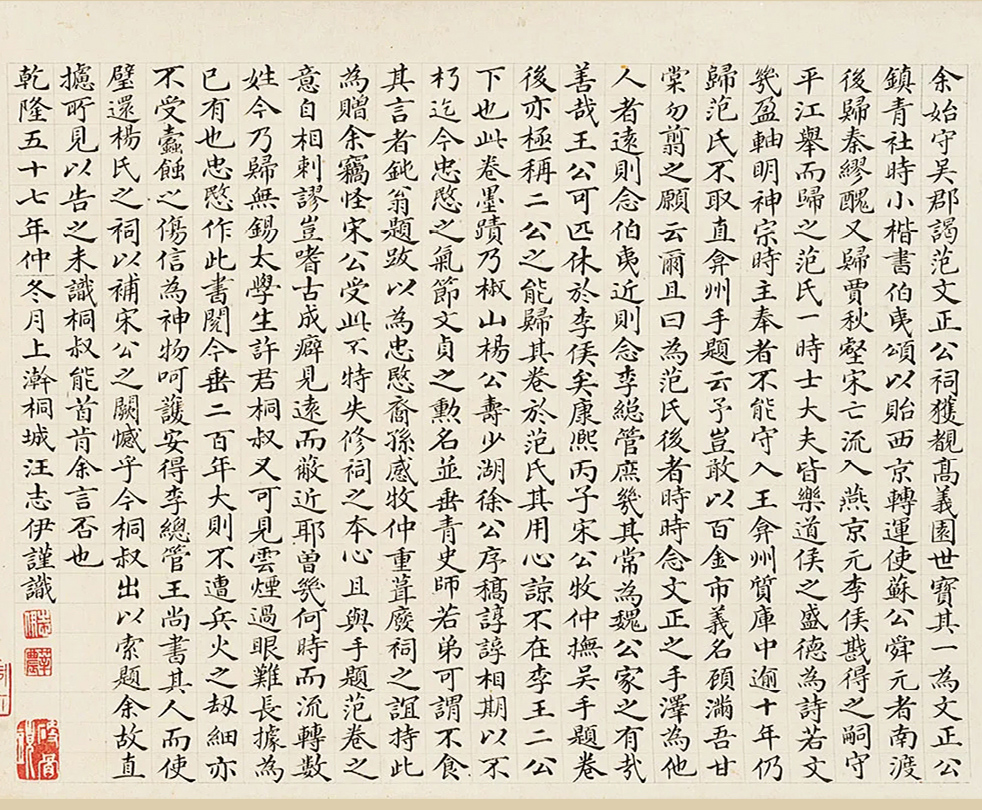 余始守吴郡謁范文正公祠獲覩髙義園世寶其一為文正公
鎮青社時小楷書伯夷頌以貽西京轉運使蘇公舜元者南渡
後歸秦繆醜又歸賈秋壑宋亡流入燕京元李侯戡得之嗣守
平江舉而歸之范氏一時士大夫皆樂道侯之盛德為詩若文
幾盈軸明神宗時主奉者不能守入王弇州質庫中逾十年仍
歸范氏不取直弇州手題云予豈敢以百金市義名頋滿吾甘
棠勿翦之願云爾且曰為范氏後者時時念文正之手澤為他
人者遠則念伯夷近則念李緫管庶幾其常為魏公家之有哉
善哉王公可匹休於李侯矣康熙丙子宋公牧仲撫吴手題卷
後亦極稱二公之能歸其卷於范氏其用心諒不在李王二公
下也此卷墨蹟乃椒山楊公壽少湖徐公序稿諄諄相期以不
朽迄今忠愍之氣節文貞之勲名並垂青史師若弟可謂不食
其言者鈍翁題跋以為忠愍裔孫感牧仲重葺廢祠之誼持此
為贈余竊怪宋公受此不特失修祠之本心且與手題范卷之
意自相刺謬豈嗜古成癖見遠而蔽近耶曽幾何時而流轉數
姓今乃歸無錫太學生許君桐叔又可見雲煙過眼難長據為
已有也忠愍作此書閱今垂二百年大則不遭兵火之刼細亦
不受蠹蝕之傷信為神物呵護安得李總管王尚書其人而使
璧還楊氏之祠以補宋公之闕憾乎今桐叔出以索題余故直
攄所見以告之未識桐叔能首肯余言否也
乾隆五十七年仲冬月上澣桐城汪志伊謹識